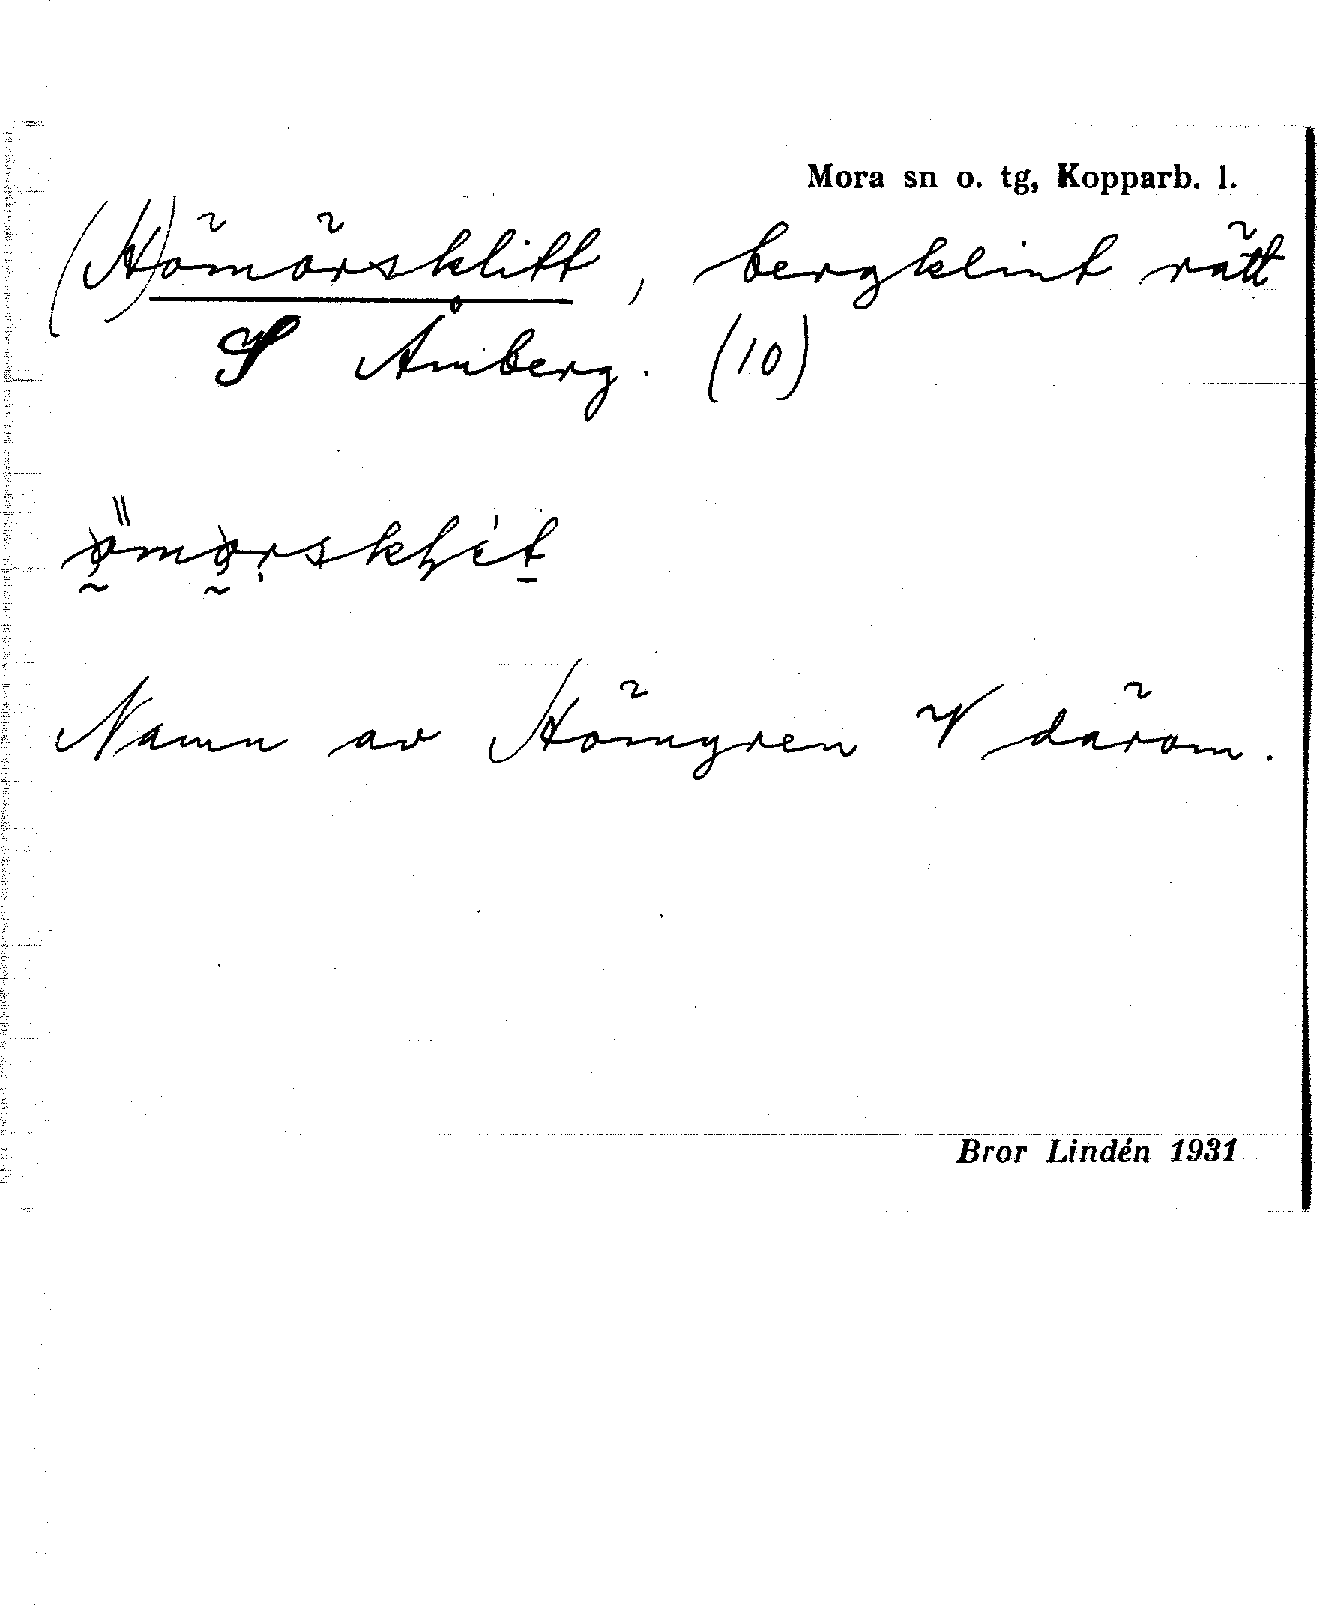 Mora sn o. tg, Kopparb. l.
(H)ömörsklitt, bergklint rätt
S Åmberg. (10)
Namn av Hömyren V därom.
Bror Lindén 1931